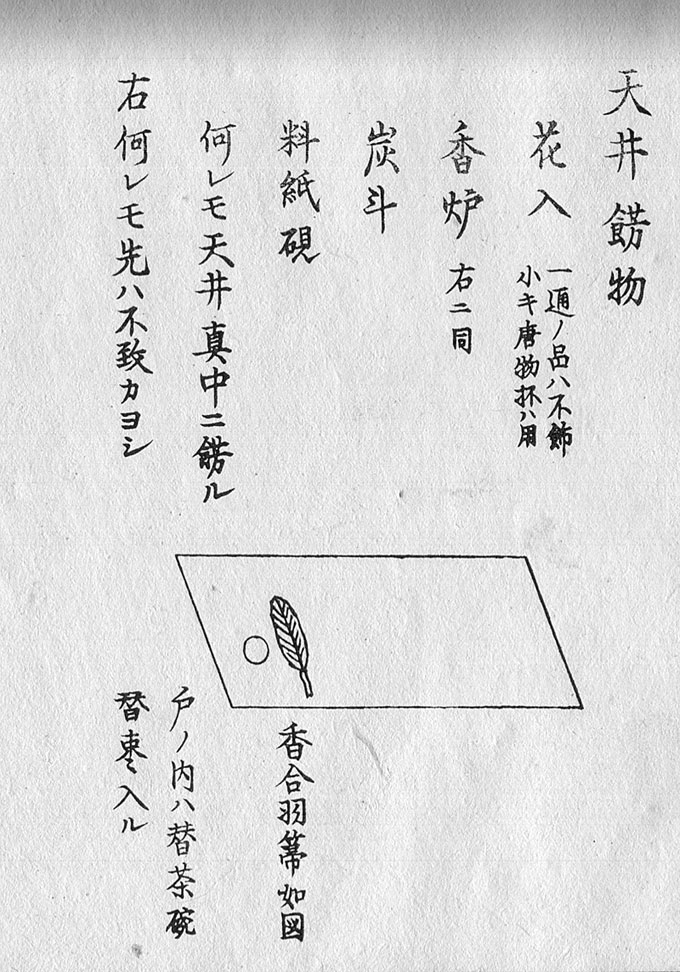 天井餝物
花入
一通ノ品ハ不飾
小キ唐物抔ハ用
香炉 右ニ同
炭斗
料紙硯
何レモ天井真中ニ餝ル
右何レモ先ハ不致カヨシ
香合羽箒如図
戸ノ内ハ替茶碗
替棗入ル